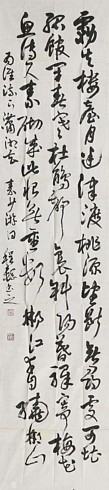 霧失樓臺月迷津渡桃源望斷無尋處可堪
孤館閉春寒杜鵑聲里斜陽暮驛寄梅花
魚傳尺素砌成此恨無重數郴江幸自繞郴山
為誰流下瀟湘去 秦少游詞